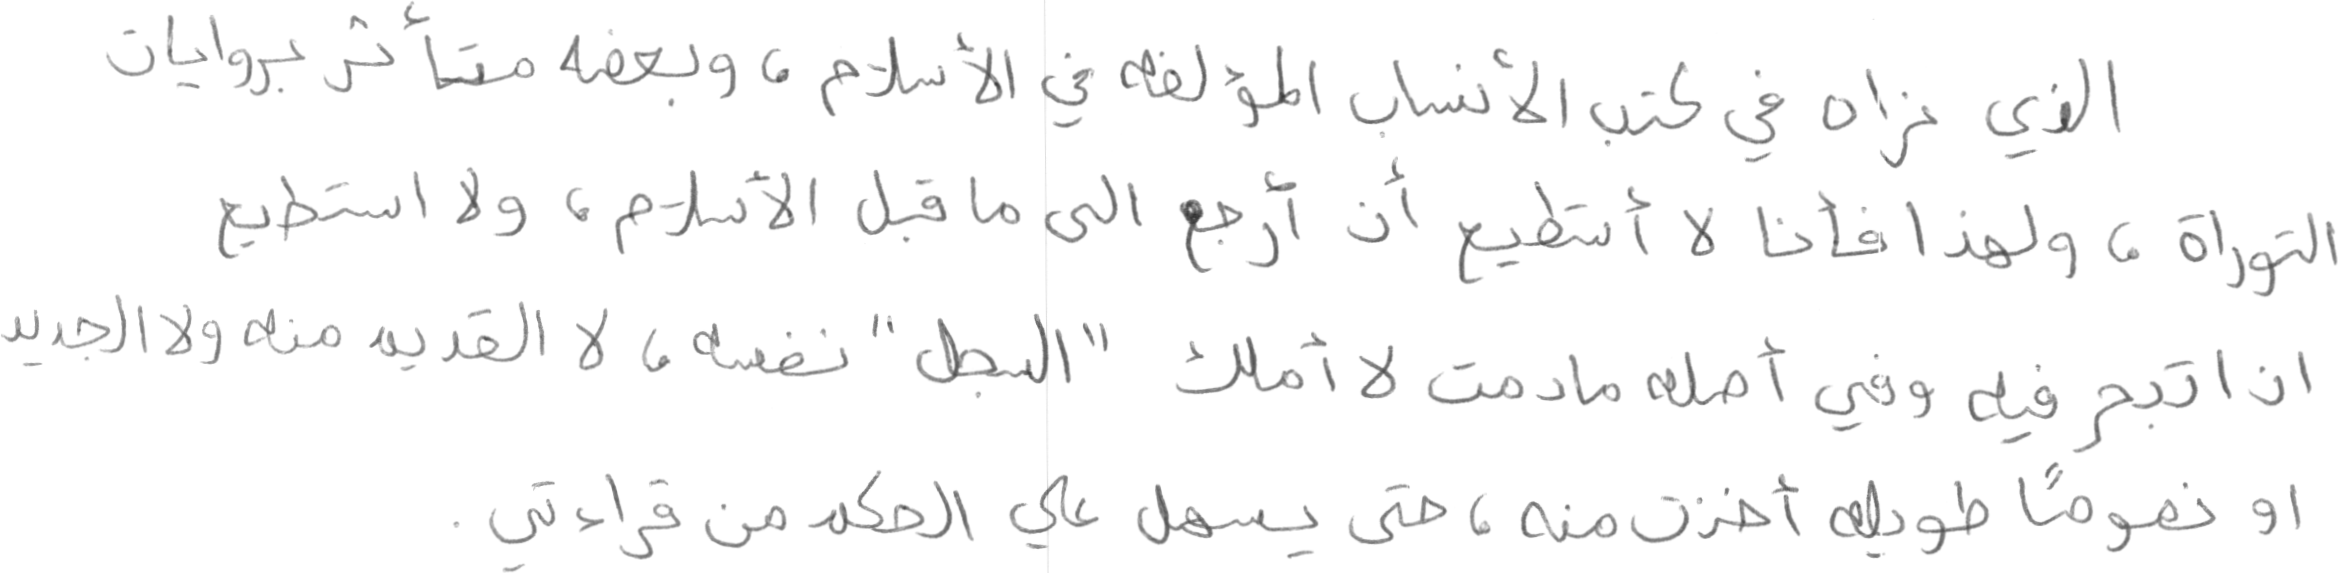 الذي نراه في كتب الأنساب المؤلفه في الأسلام ، وبعضه متأثر بروايات
التوراة ، ولهذا فأنا لا أستطيع أن أرجع الى ما قبل الأسلام ، ولا استطيع
ان اتبحر فيه وفي أصله مادمت لا أملك "السجل" نفسه ، لا القديم منه ولا الجديد
او نصوصًا طويله أخذت منه ، حتى يسهل علي الحكم من قراءتي .